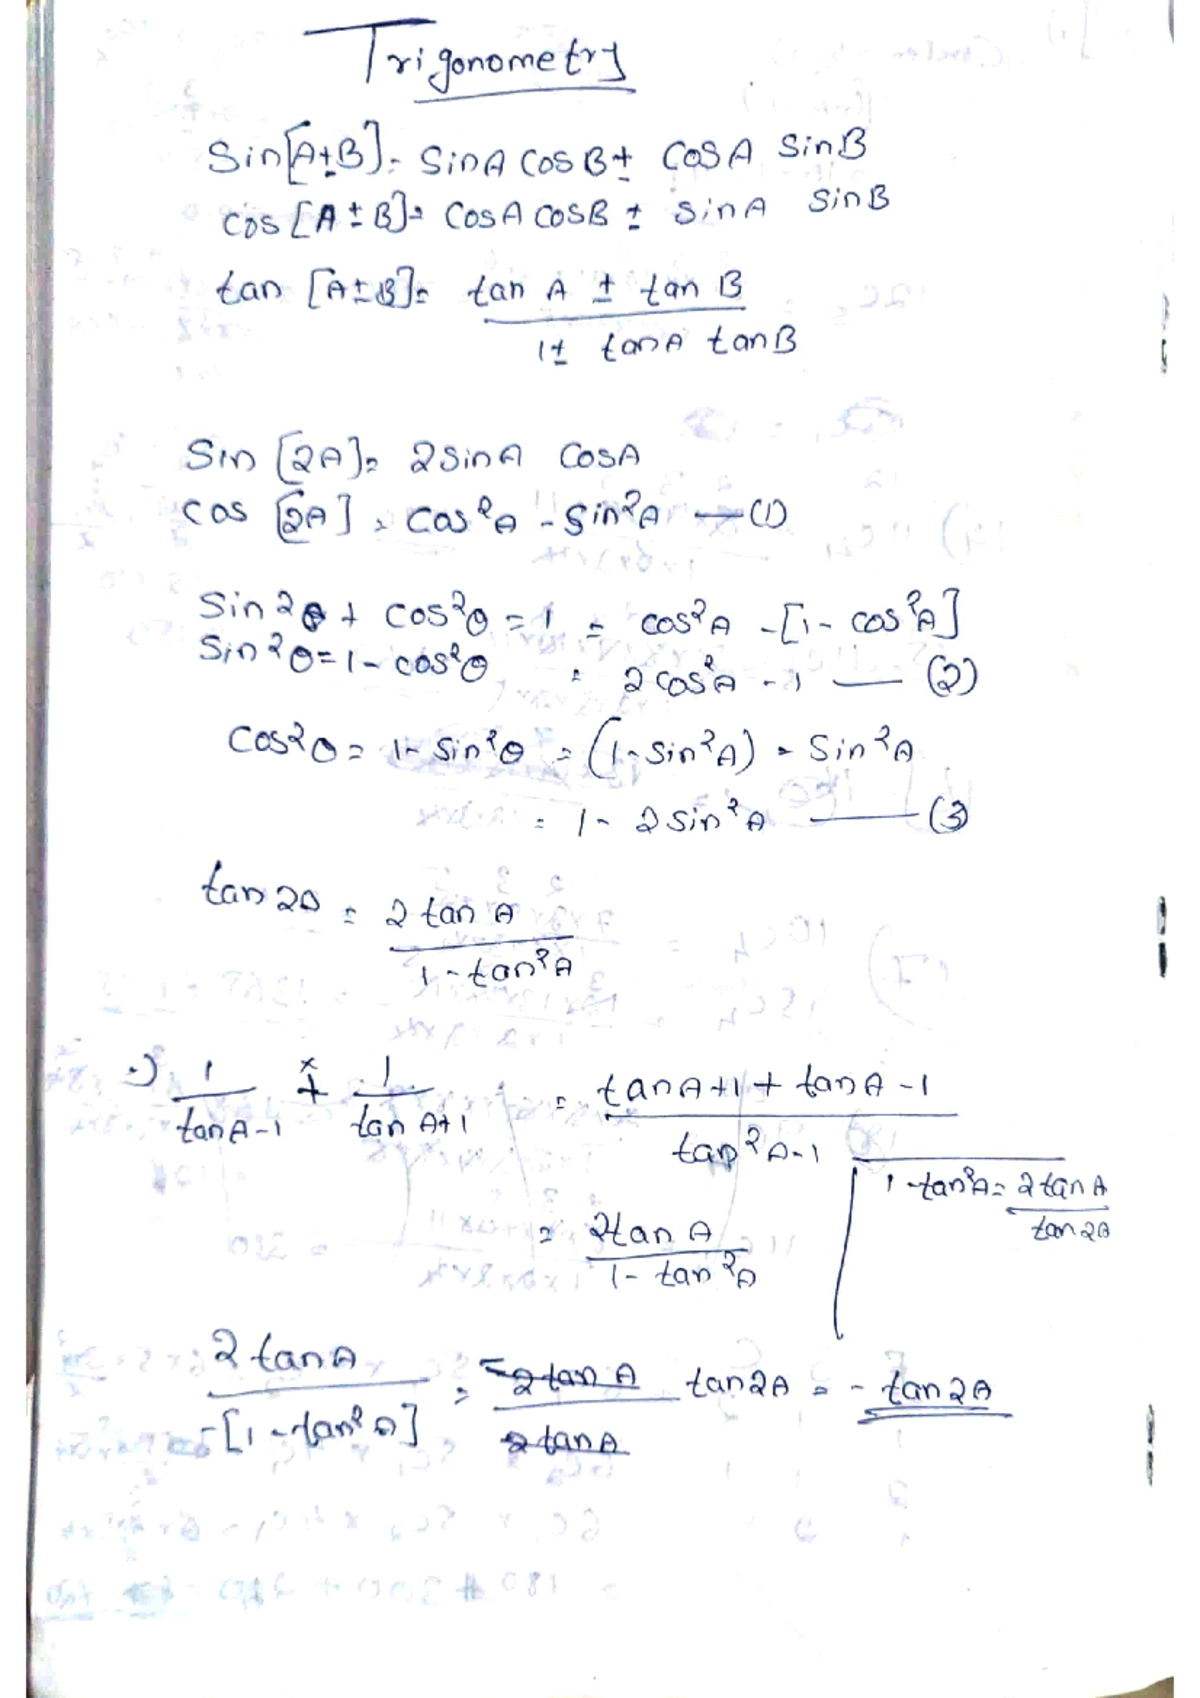 Trigonometry
Sin[A±B] = SinA CosB ± CosA SinB
Cos [A ± B] = CosA CosB ± SinA SinB
tan [A±B] = tan A ± tan B
1± tanA tanB
Sin [2A] = 2SinA CosA
Cos [2A] = Cos²A - Sin²A — (1)
Sin²θ + Cos²θ = 1 = cos²A - [1 - cos²A]
Sin²θ = 1 - cos²θ = 2cos²A - 1 — (2)
Cos²θ = 1- Sin²θ = (1-Sin²A) - Sin²A
= 1 - 2Sin²A — (3)
tan 2A = 2 tan A
1 - tan²A
1 + 1 = tanA+1 + tanA -1
tanA-1 tan A+1 tan²A-1
1-tan²A = 2tanA
tan2A
= 2tan A
1 - tan²A
2 tanA = -2tan A tan2A = - tan2A
-[1 - tan²A] 2tanA